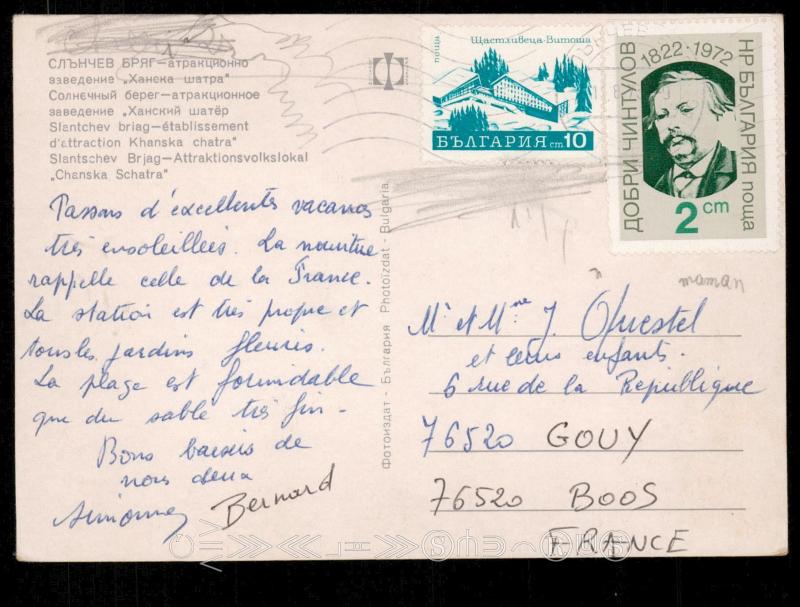 СЛЪНЧЕВ БРЯГ—атракционно
заведение „Ханска шатра“
Солнечный берег—атракционное
заведение „Ханский шатёр
Slantchev briag—établissement
d'attraction Khanska chatra"
Slantschev Brjag—Attraktionsvolkslokal
„Chanska Schatra"
Passons d'excellentes vacances
très ensoleillées. La nourriture
rappelle celle de la France.
La station est très propre et
tous les jardins fleuris.
La plage est formidable
que du sable très fin -
Bons baisers de
nous deux
Simonne Bernard
Фотоиздат - България Photoizdat - Bulgaria
поща
Щастливеца-Витоша
БЪЛГАРИЯ ст 10
ДОБРИ ЧИНТУЛОВ
1822-1972
НР БЪЛГАРИЯ поща
2 cm
maman
Mr et Mme J. Questel
et leurs enfants.
6 rue de la République
76520 GOUY
76520 BOOS
FRANCE